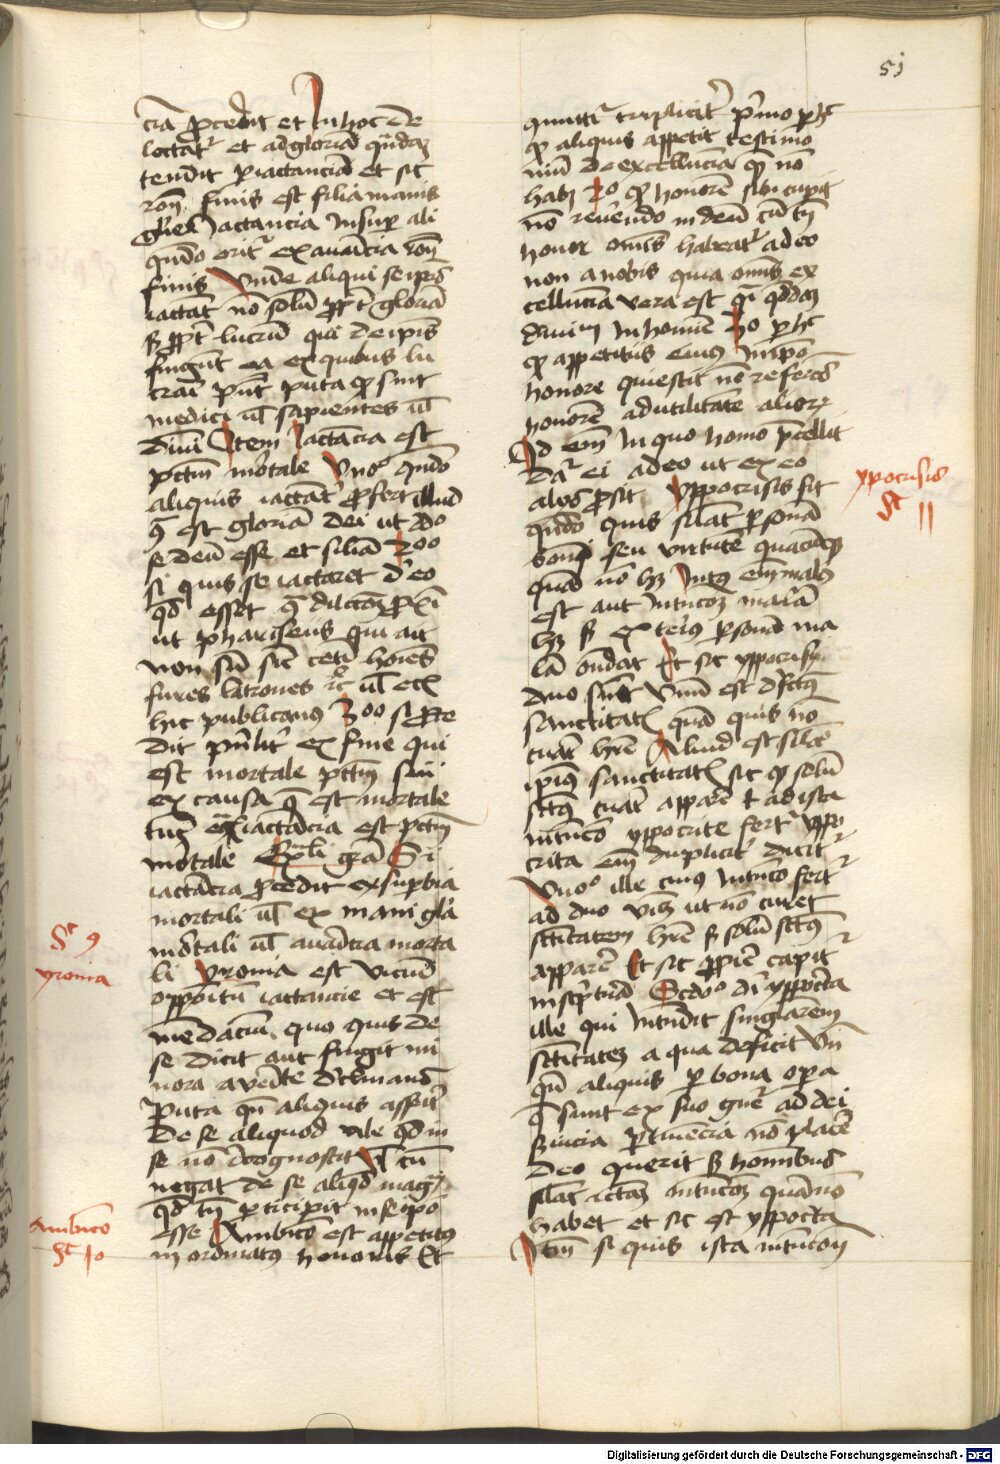 51
cia procedit et In hoc de
lectatur et ad gloriam quandam
tendit per iactanciam et sic
finis est filia inanis
glorie Iactancia Insuper ali
quando oritur ex auaricia
finis Vnde aliqui se ipsos
iactant non solum propter gloriam
sed propter lucrum qui de ipsis
fingunt ea ex quibus lu
crari possunt puta quod sint
medici uel sapientes uel
diuini Item Iactancia est
peccatum mortale Vno modo quando
aliquis iactanter profert illud
quod est gloriam dei ut
se deum esse et similia 2o
si quis se iactaret de eo
quod esset contra dilectionem proximi
ut phariseus qui ait
non sum sicut ceteri homines
fures latrones etc uel eciam
hic publicanus 3o si proce
dit ex fine qui
est mortale peccatum siue
ex causa que est mortale
tunc iactancia est peccatum
mortale Exempli gracia Si
iactancia procedit ex superbia
mortali uel ex inani gloria
mortali uel auaricia morta
li Yronia est vicium
oppositum iactancie et est
mendacium quo quis de
se dicit aut fingit mi
nora a veritate declinando
Puta quando aliquis asserit
de se aliquod vile quod in
se non recognoscit Vel cum
negat de se aliquod magnum
quod tamen percipit in se ipso
esse Ambicio est appetitus
in ordinatus honoris Et
St 9
yronia
Ambicio
St 10
contingit tripliciter Primo per hoc
quod aliquis appetit testimo
nium de excellencia quam non
habet 2o quod honorem sibi cupit
non referendo in deum cum tamen
honor omnis habeatur a deo
non a nobis quia omnis ex
cellencia vera est quasi quoddam
diuinum In homine 3o per hoc
quod appetitus eius In ipso
honore quiescit non referens
honorem ad utilitatem aliorum
Id enim In quo homo precellit
datur ei a deo ut ex eo
aliis prosit Yppocrisis fit
quando quis simulat personam
bonam seu virtutem quamcumque
quam non habet Intus enim malus
est aut Intencionem malam
habet sed exterius personam
ostendat Et sic yppocrisi
duo sunt Vnum est defectus
sanctitatis quam quis non
curat habere Aliud est simulacio
ipsius sanctitatis sic quod solum
sanctus curat apparere et ad ista
intencio ypocrite fertur yppo
crita enim dupliciter dicitur
Vno modo ille cuius Intencio fertur
ad duo videlicet ut non curet
sanctitatem habere sed solum sanctus
apparere Et sic proprie capitur
in scriptura Secundo modo dicitur yppocrita
ille qui Intendit simulare
sanctitatem a qua deficit Vnde
quando aliquis per bona opera
que sunt ex suo genere ad dei
seruicia pertinencia non placere
deo querit sed hominibus
simulat rectam intencionem quam non
habet et sic est yppocrita
Item si quis ista intencione
ypocrisis
St 11
Digitalisierung gefördert durch die Deutsche Forschungsgemeinschaft - DFG